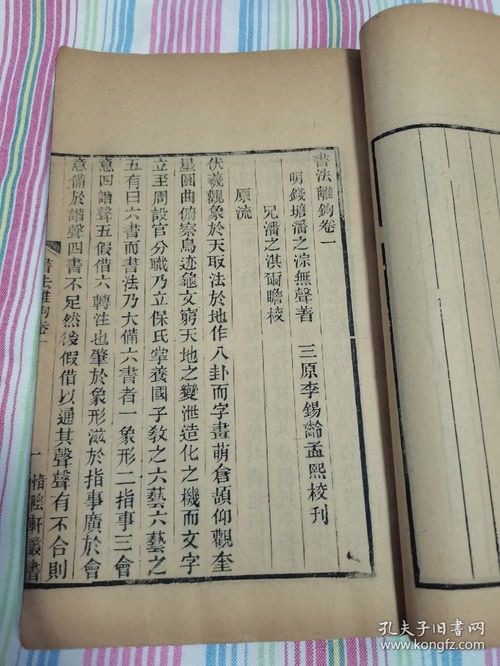 書法離鉤卷一
明錢塘潘之淙無聲著
兄潘之淇爾瞻校
三原李錫齡孟熙校刊
原流
伏羲觀象於天取法於地作八卦而字畫萌倉頡仰觀奎
星圜曲俯察鳥迹龜文窮天地之變泄造化之機而文字
立至周設官分職乃立保氏掌養國子教之六藝六藝之
五有曰六書而書法乃大備六書者一象形二指事三會
意四諧聲五假借六轉注也肇於象形滋於指事廣於會
意備於諧聲四書不足然後假借以通其聲聲有不合則
書法離鉤卷一
一
惜陰軒叢書
孔夫子旧书网
www.kongfz.com